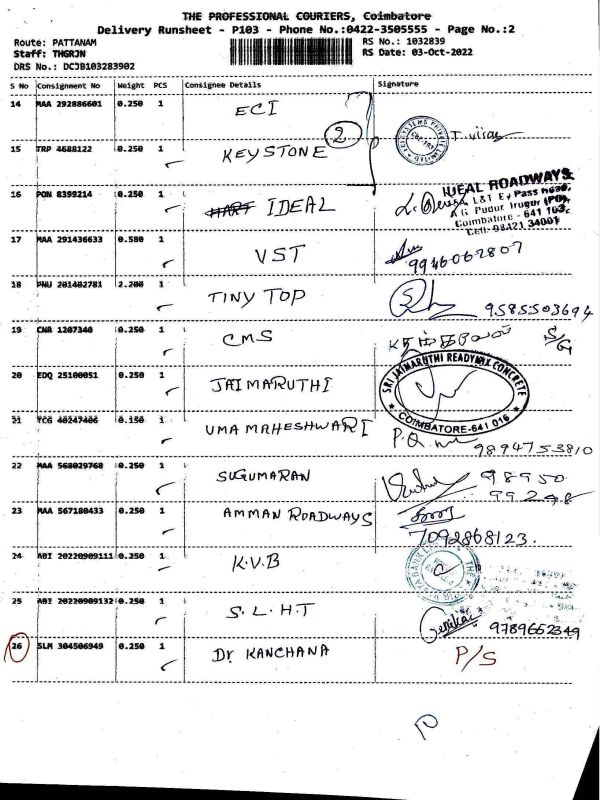 THE PROFESSIONAL COURIERS, Coimbatore
Delivery Runsheet - P103 - Phone No.:0422-3505555 - Page No.:2
Route: PATTANAM
RS No.: 1032839
Staff: THGRJN
RS Date: 03-Oct-2022
DRS No.: DCJB103283902
S No Consignment No Weight PCS Consignee Details Signature
14 MAA 292886601 0.250 1 ECI
2
15 TRP 4688122 0.250 1 KEYSTONE
16 PON 8399214 0.250 1 IDEAL
IDEAL ROADWAYS
L&T By Pass Road,
A G Pudur Irugur (PO),
Coimbatore - 641 103.
Cell: 98421 34001
17 MAA 291436633 0.580 1 VST
9946062807
18 PNU 201402781 2.200 1 TINY TOP
9585503694
19 CNR 1207340 0.250 1 CMS
S/G
20 EDQ 25100051 0.250 1 JAIMARUTHI
SRI JAIMARUTHI READYMIX CONCRETE
COIMBATORE-641 016
21 TCG 40247406 0.150 1 UMA MAHESHWARI
9894753810
22 MAA 568029768 0.250 1 SUGUMARAN
98950
99248
23 MAA 567180433 0.250 1 AMMAN ROADWAYS
7092868123.
24 ABI 20220909111 0.250 1 K.V.B
25 ABI 20220909132 0.250 1 S.L.H.T
9789652349
26 SLM 304506949 0.250 1 Dr KANCHANA P/S